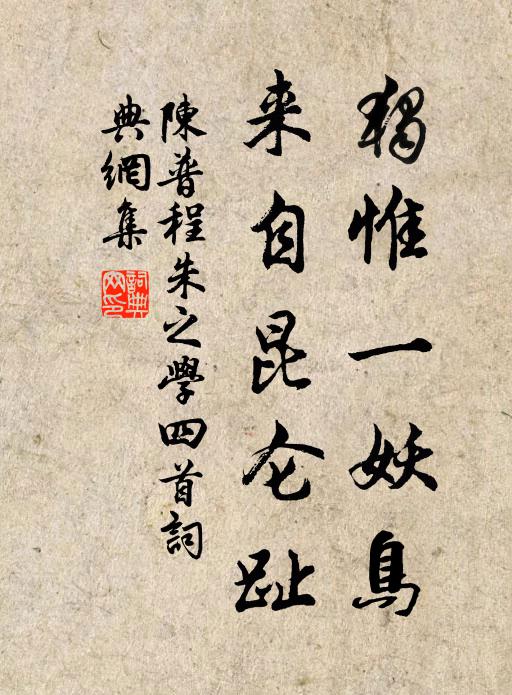 獨惟一妖鳥
来自昆仑趾
陳普程朱之學四首詞
典網集
詞典网印